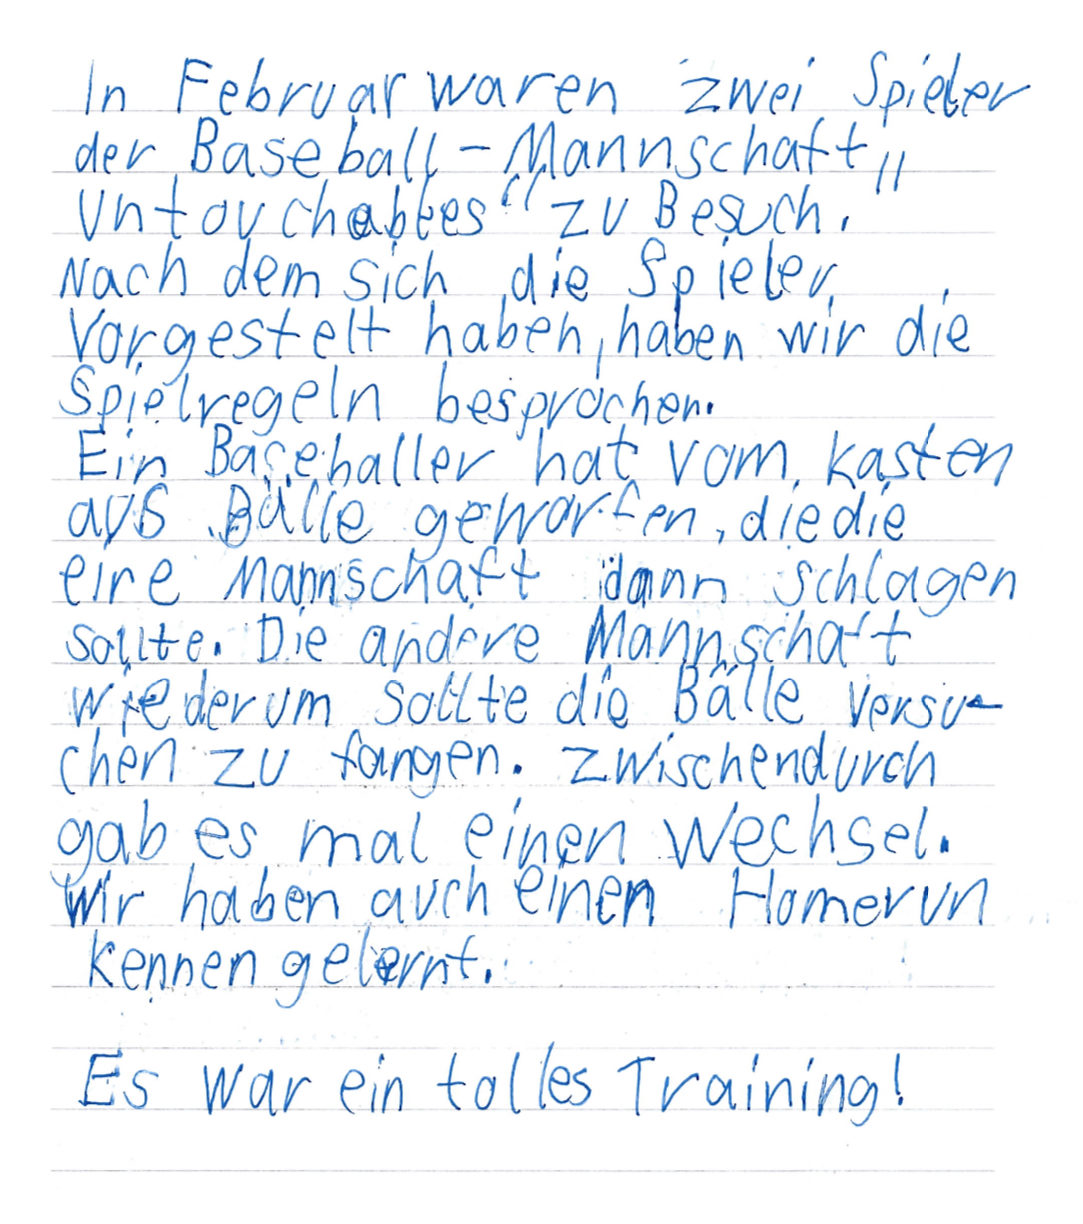 In Februar waren zwei Spieler
der Baseball-Mannschaft „
Untouchables“ zu Besuch.
Nach dem sich die Spieler
Vorgestelt haben, haben wir die
Spielregeln besprochen.
Ein Baseballer hat vom kasten
aus Bälle geworfen, die die
eine Mannschaft dann schlagen
sollte. Die andere Mannschaft
wiederum sollte die Bälle versu-
chen zu fangen. Zwischendurch
gab es mal einen Wechsel.
Wir haben auch einen Homerun
kennen gelernt.
Es war ein tolles Training!